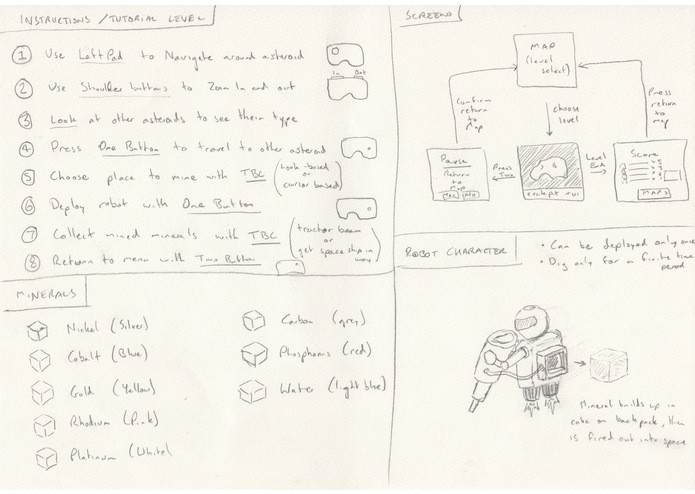 INSTRUCTIONS / TUTORIAL LEVEL
1 Use Left Pad to Navigate around asteroid
In Out
2 Use Shoulder buttons to Zoom In and out
3 Look at other asteroids to see their type
4 Press One Button to travel to other asteroid
5 Choose place to mine with TBC (Look-based or cursor based)
6 Deploy robot with One Button
7 Collect mined minerals with TBC (tractor beam or get space ship in way)
8 Return to menu with Two Button
MINERALS
Nickel (Silver)
Cobalt (Blue)
Gold (Yellow)
Rhodium (Pink)
Platinum (White)
Carbon (grey)
Phosphorus (red)
Water (light blue)
SCREENS
MAP
(level
select)
Confirm
return
to
Map
choose
level
Press
return
to
map
Pause
Return
to
Map
Yes No
Press
Two
cockpit + ui
Level
End
Score
MAP
ROBOT CHARACTER
• Can be deployed only once
• Dig only for a finite time
period
Mineral builds up in
cube on backpack, then
is fired out into space